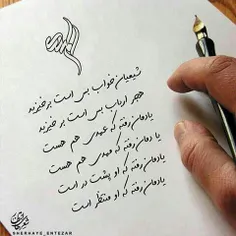 شیعیان خواب بس است برخیزید
هجر ارباب بس است برخیزید
یادمان رفته که عهدی هم هست
یادمان رفته که مهدی هم هست
یادمان رفته که او پشت در است
یادمان رفته که او منتظر است
@SHERHAYE_ENTEZAR